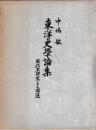 中嶋敏
東洋史學論集
宋代史研究とその周辺